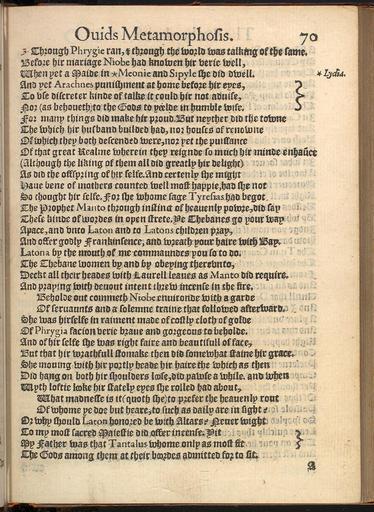 Ouids Metamorphosis. 70
Through Phrygie ran, & through the world was talking of the same.
Before hir mariage Niobe had knowen hir verie well,
When yet a Maide in *Meonie and Sipyle she did dwell. *Lydia.
And yet Arachnes punishment at home before hir eyes,
To vse discreter kinde of talke it could hir not aduise,
Nor (as behoueth) to the Gods to yelde in humble wise.
For many things did make hir proud. But neyther did the towne
The which hir husband builded had, nor houses of renowne
Of which they both descended were, nor yet the puissance
Of that great Realme wherein they reignde so much hir minde enhaūce
(Although the liking of them all did greatly hir delight)
As did the offspring of hir selfe. And certenly she might
Haue bene of mothers counted well most happie, had she not
So thought hir selfe. For she whome sage Tyresias had begot
The Prophet Manto through instinct of heauenly powre, did say
These kinde of wordes in open strete. Ye Thebanes go your way
Apace, and vnto Laton and to Latons children pray,
And offer godly Frankinsence, and wreath your haire with Bay.
Latona by the mouth of me commaundes you so to do.
The Thebane women by and by obeying therevnto,
Deckt all their heades with Laurell leaues as Manto did require.
And praying with deuout intent threw incense in the fire.
Beholde out commeth Niobe enuironde with a garde
Of seruaunts and a solemne traine that followed afterward.
She was hirselfe in raiment made of costly cloth of golde
Of Phrygia facion verie braue and gorgeous to beholde.
And of hir selfe she was right faire and beautifull of face,
But that hir wrathfull stomake then did somewhat staine hir grace.
She mouing with hir portly heade hir haire the which as then
Did hang on both hir shoulders lose, did pawse a while, and when
Wyth loftie loke hir stately eyes she rolled had about,
What madnesse is it (quoth she) to prefer the heauenly rout
Of whome ye doe but heare, to such as daily are in sight?
Or why should Laton honored be with Altars? Neuer wight
To my most sacred Maiestie did offer incense. Yit
My Father was that Tantalus whome only as most fit
The Gods among them at their bordes admitted for to sit.